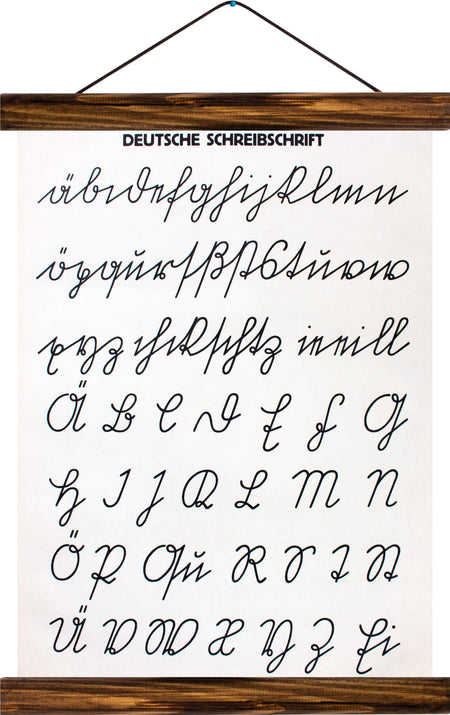 DEUTSCHE SCHREIBSCHRIFT
äbcdefghijklmn
öpqurſßſtstüvw
xyz chckſchtz
Ä B C D E F G
H I J K L M N
Ö P Qu R S T St
Ü V W X Y Z Ei